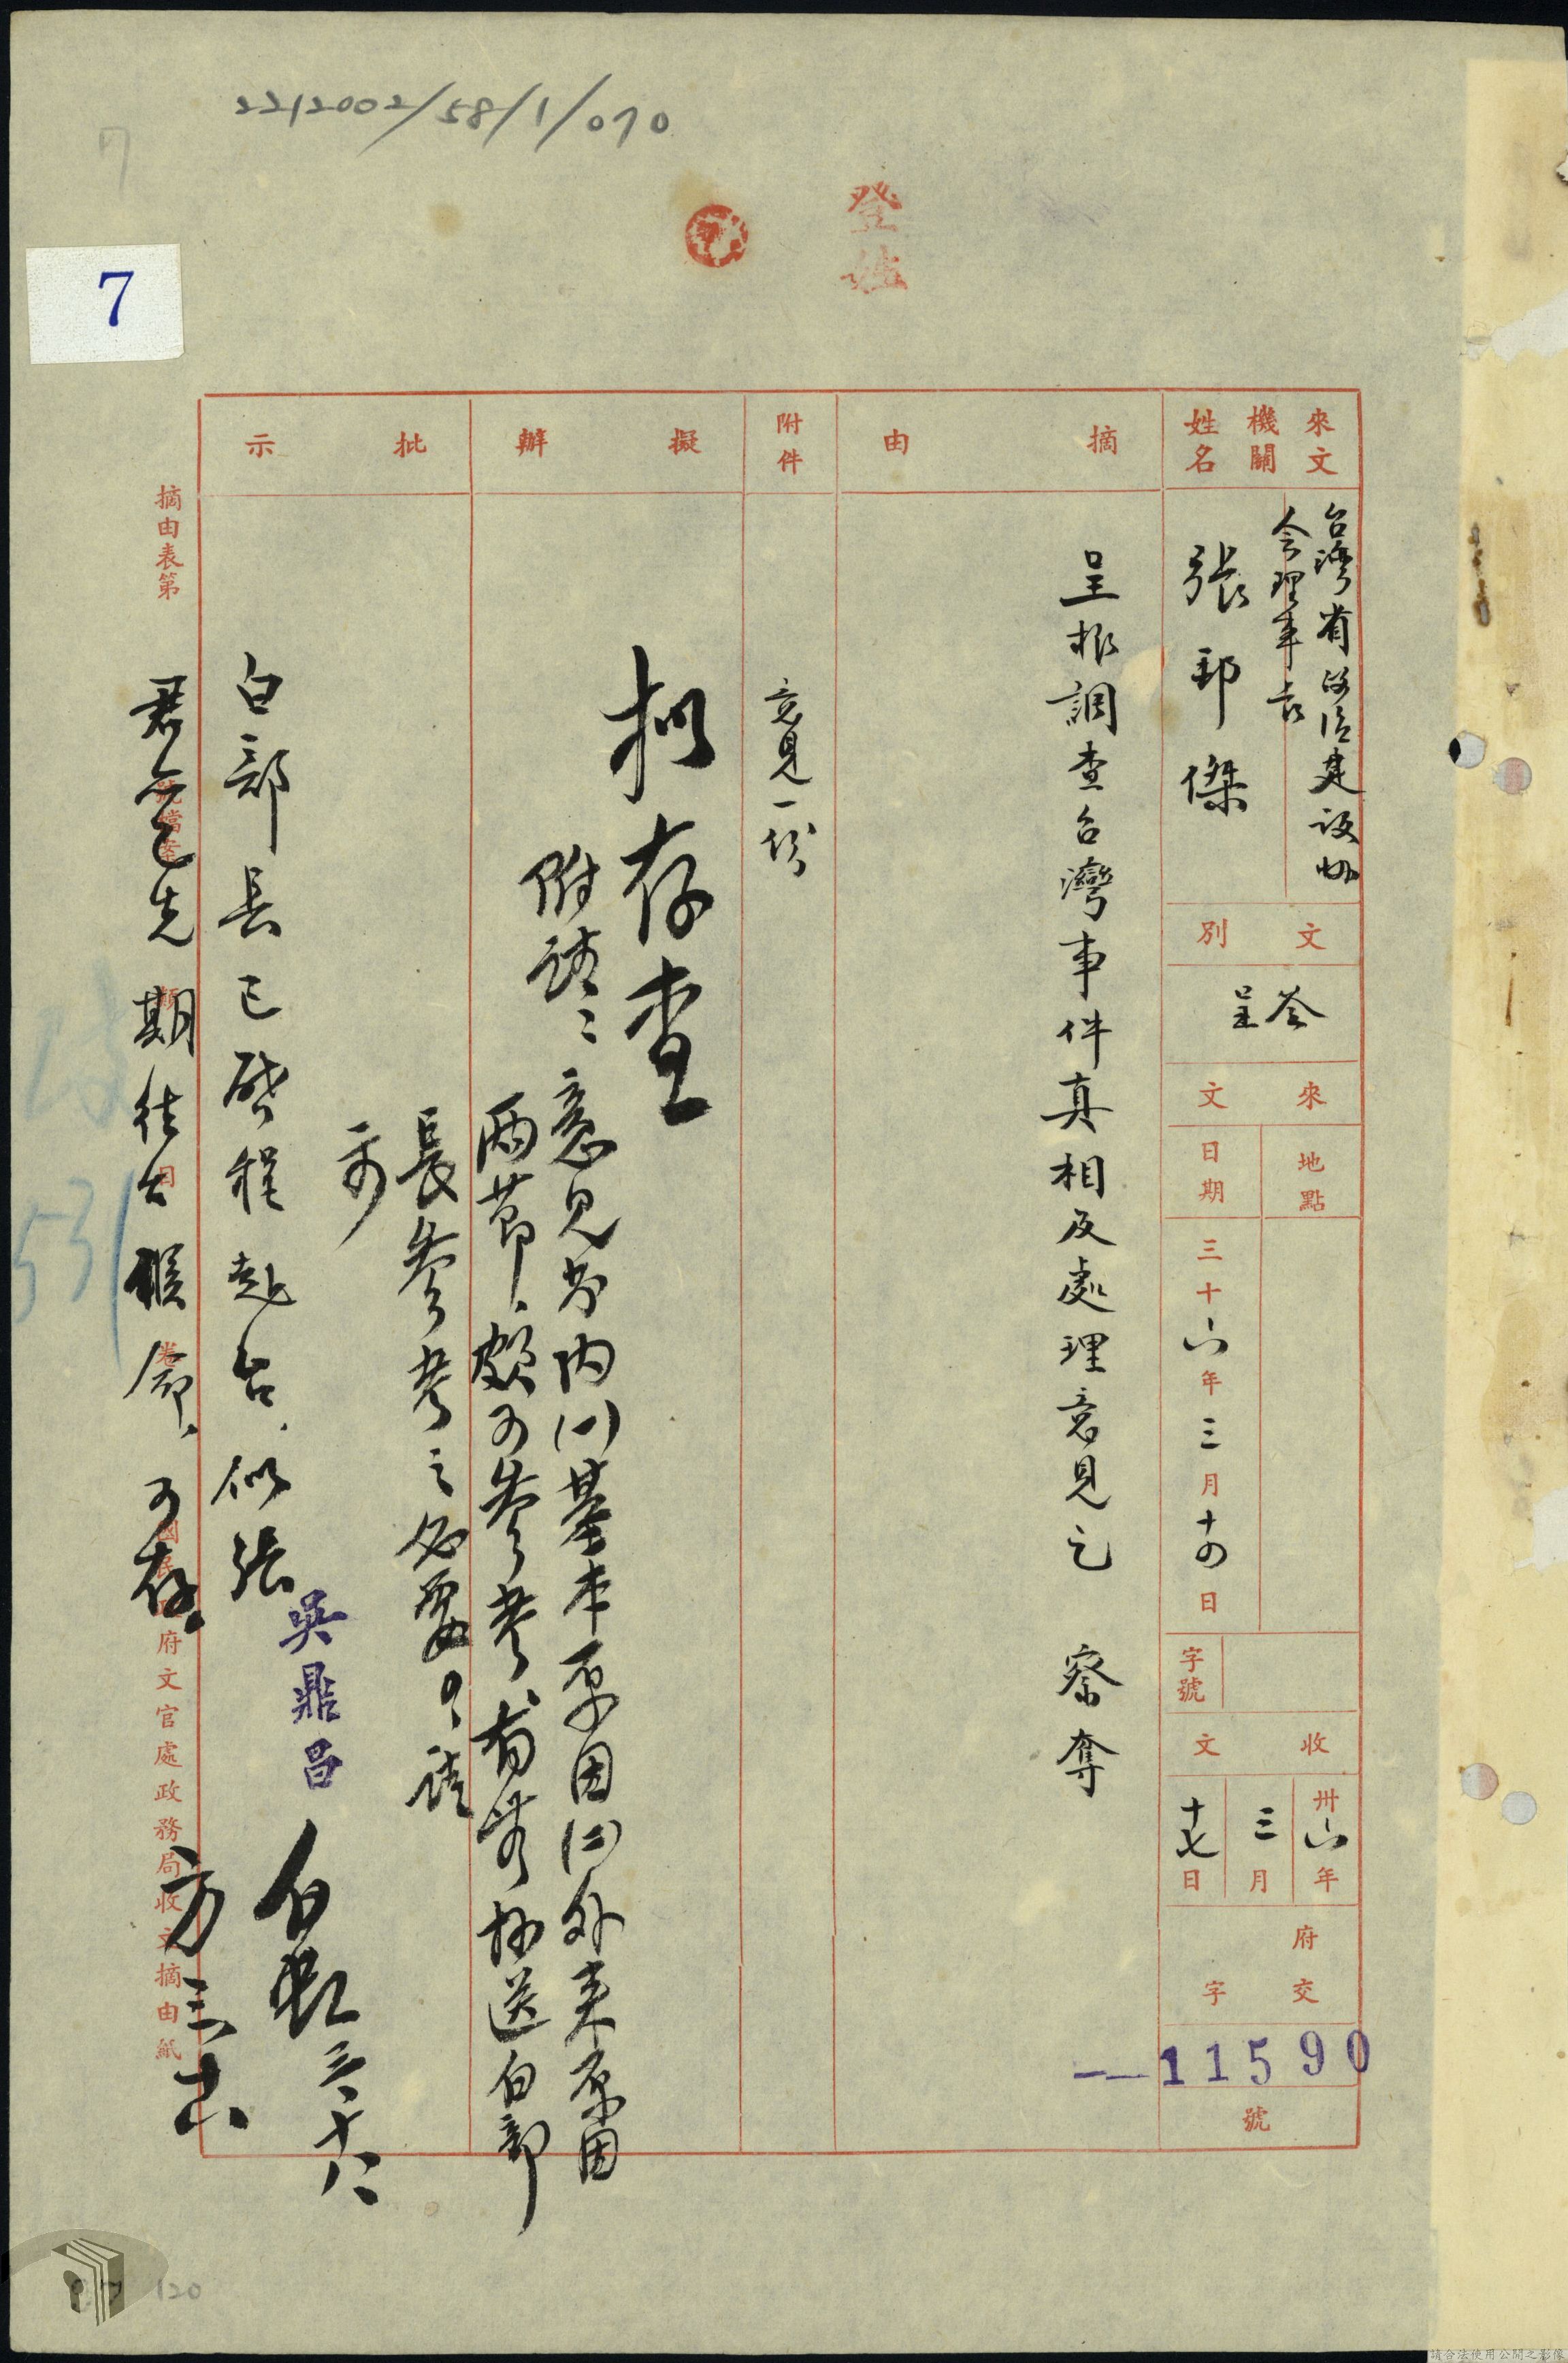 2212002/58/1/070
7
7
登
來文機關姓名
台灣省政治建設協
會理事長
張邦傑
文別
呈
來文
地點
日期
三十六年三月十四日
字號
收文
卅六年三月十七日
府交字
11590
號
摘由
呈報調查台灣事件真相及處理意見乞 察奪
附件
意見一份
擬辦
擬存查
附註:意見書內(一)基本原因(四)外來原因
兩節,頗可參考,有
抄送白部
長參考之必要,請
示
批示
白部長已啓程赴台,似
張
君先期往台候命,可存。
吳鼎昌
三、十八
方 三、十八
摘由表第 號檔案 類 目 卷
國民政府文官處政務局收文摘由紙
531
120
請合法使用公開之影像